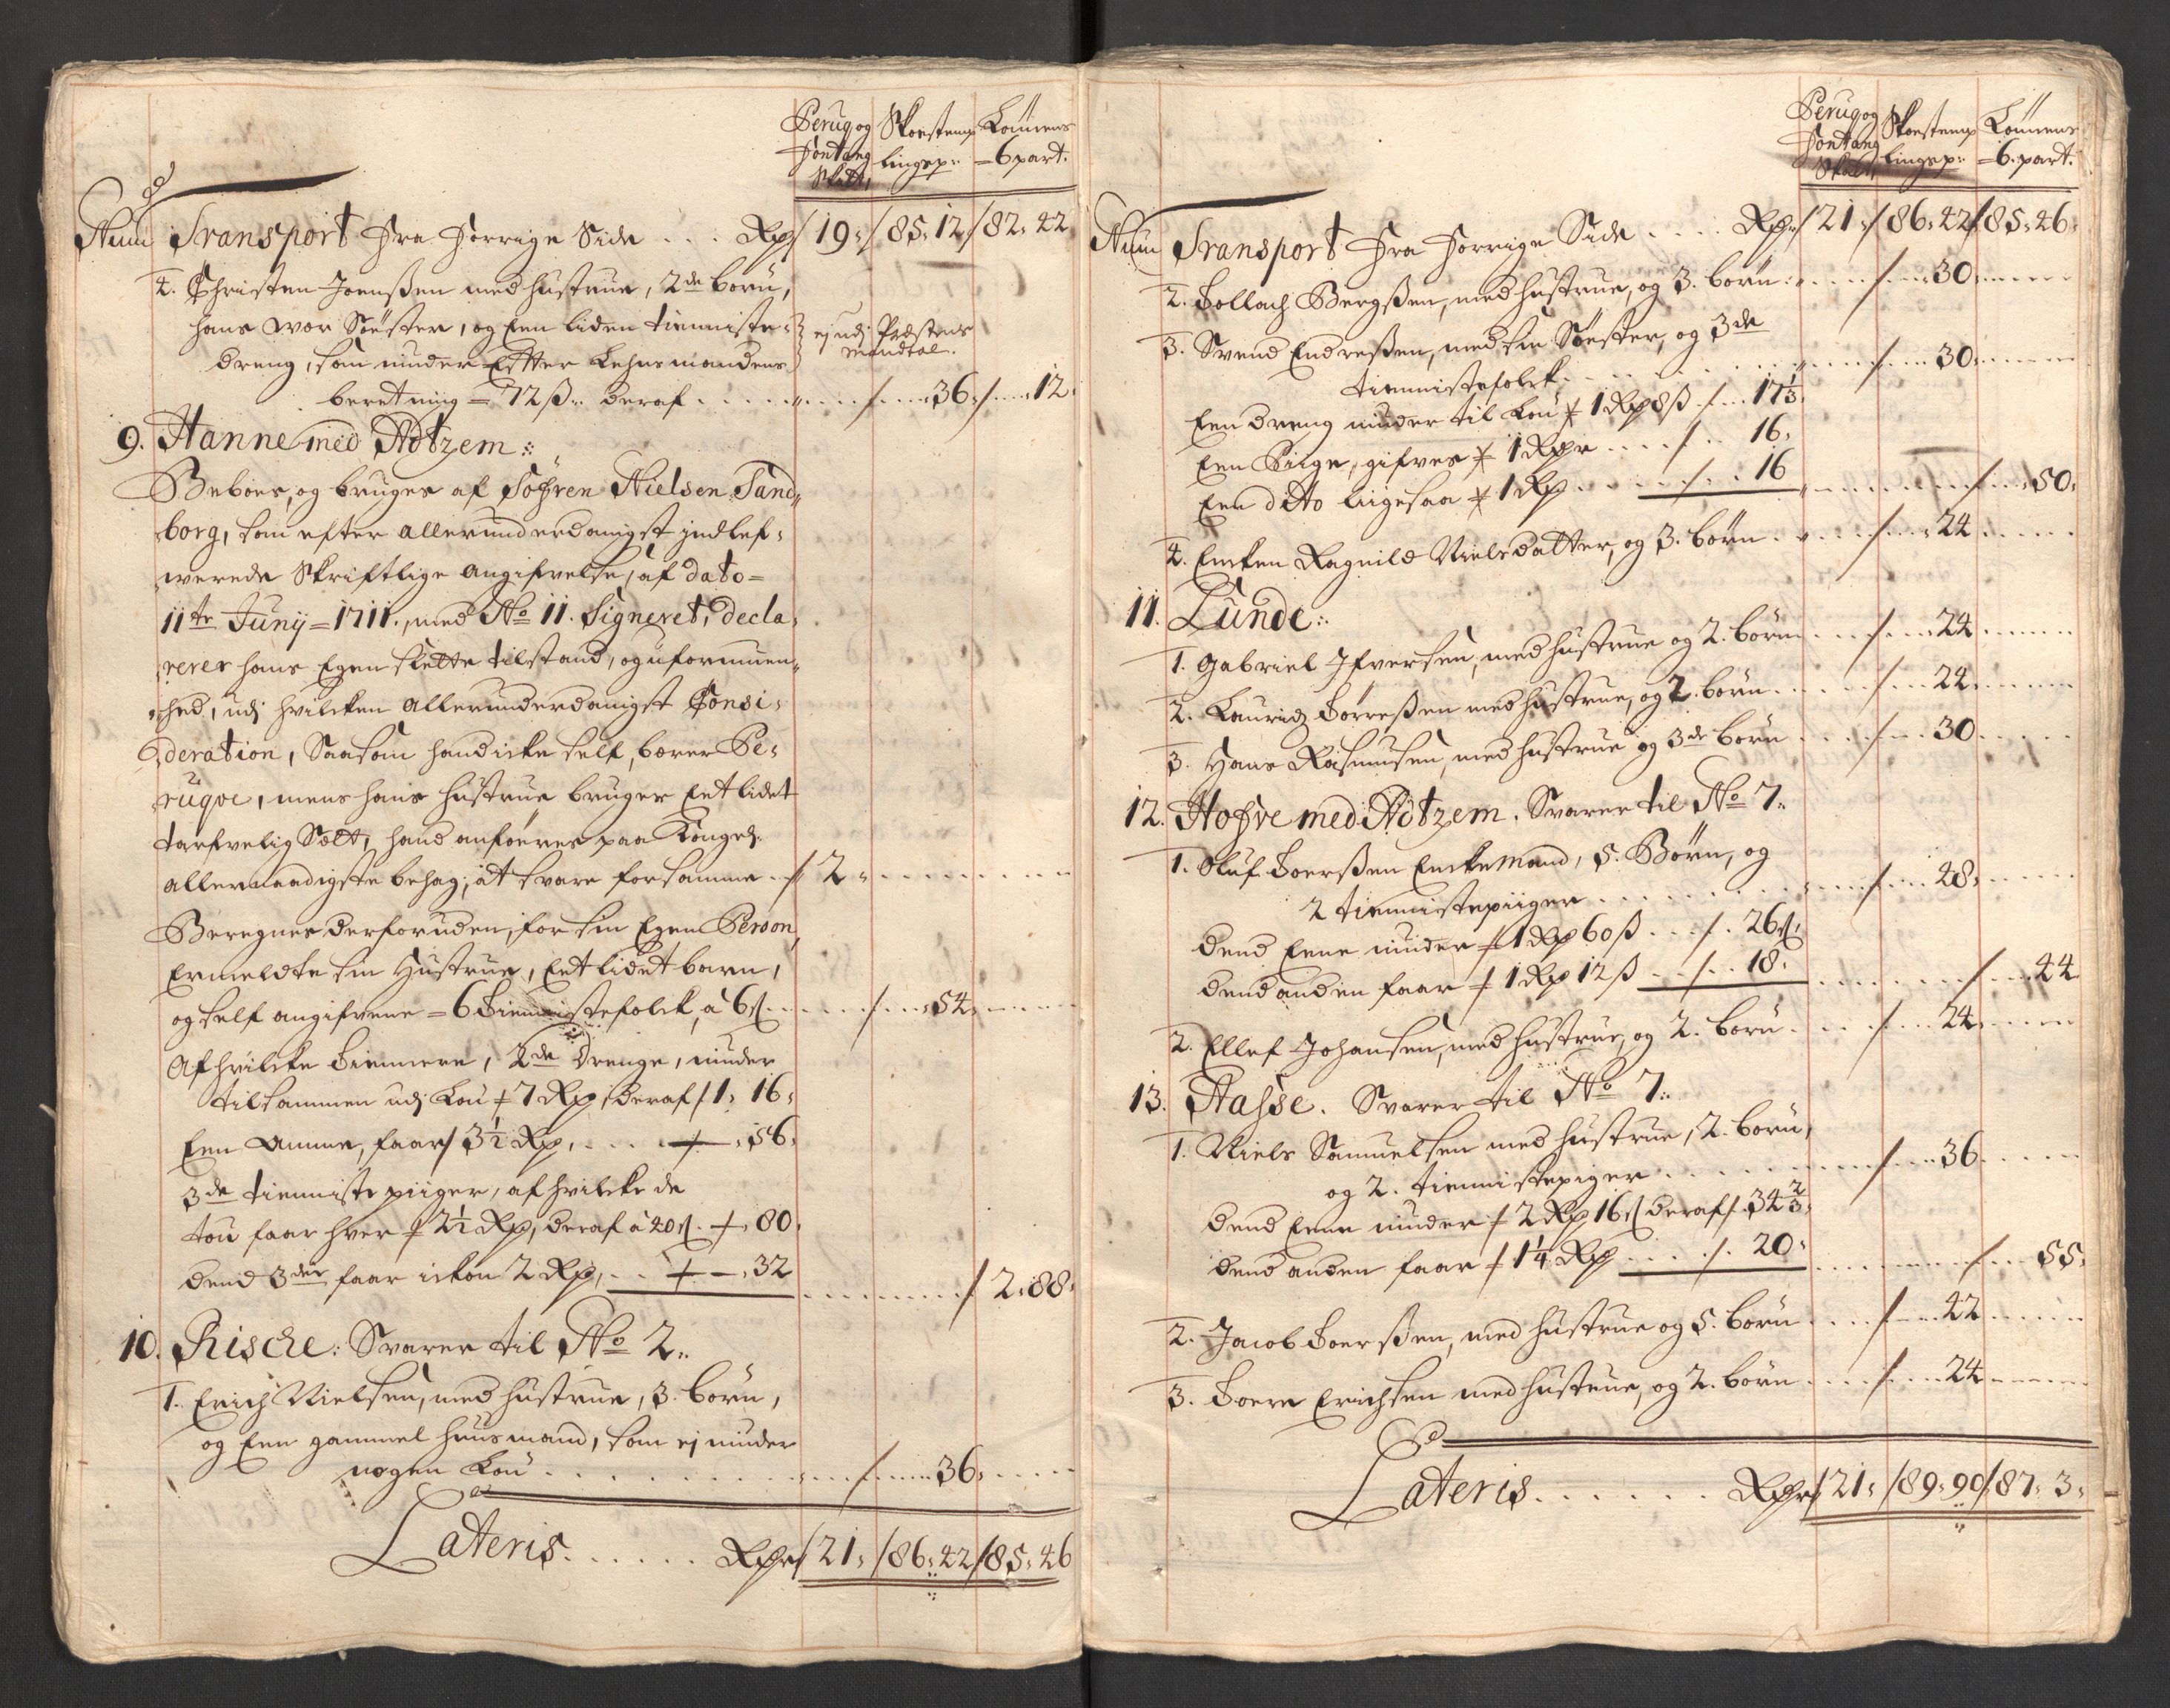 Perug og Skorstenp Lönnens
Fontang lingsp: =6 part.
Skatt,
Num Transport fra Forrige Side . . . Rdr / 19: / 85. 12 / 82. 42
4. Christen Joensßen med hustrue, 2de börn,
hans Mor Söster, og Een liden tienniste= ej udj Præstens
dreng, som niuder Efter Lehnsmandens Mandtal.
beretning = 72 ß: deraf . . . . . / . . . 36. / . . . 12.
9. Hanne med Ödtzem:
Beboes, og bruges af Söfren Nielsen Sand=
borg, som efter allerunderdanigst indlef=
werede Skriftlige Angifvelse, af dato=
11te Junÿ = 1711. med No 11. Signeret, decla=
rerer hans Egen slette tilstand, og uformuen=
hed, udj hvilcken allerunderdanigst Consi=
deration, Saasom hand icke self, bærer Pe=
ruqve, mens hans hustrue bruger Eet lidet
tarfvelig Sæt, hand anföeres paa Konges
allernaadigste behag, at svare for samme . / 2 . . . . .
Beregnes derforuden, for sin Egen Person,
Ermeldte sin Hustrue, Eet lidet barn,
og self angifvene = 6 Tiennistefolck, à 6 ß . . . . / . . . 54. . . .
Af hvilcke Tiennere, 2de Drenge, niuder
tilsammen udj Lön / 7 Rdr, deraf / 1. 16.
Een Amme, faar / 3½ Rdr, . . . / . 56.
3de tienniste piiger, af hvilcke de
tou faar hver / 2½ Rdr, deraf à 40 ß . / . 80.
dend 3die faar ickon 2 Rdr, . . / . 32 . . . . . . / 2. 88.
10. Rische: Svarer til No 2.
1. Erich Nielsen, med hustrue, 3. börn,
og Een gammel huusmand, som ej niuder
nogen Lön . . . . . . . . / . . . 36. . . .
Lateris . . . . . . Rdr / 21. / 86. 42 / 85. 46
Perug og Skorstenp Lönnens
Fontang lingsp: =6. part.
Skatt,
Num Transport fra Forrige Side . . . . Rdr / 21. / 86. 42 / 85. 46.
2. Tollach Bergsßen, med hustrue, og 3. börn . . . . / . . . 30. . . .
3. Svend Endresßen, med sin Söester, og 3de
tiennistefolck . . . . . . / . . . 30. . . .
Een dreng niuder til Lön / 1 Rdr 8 ß / . . 17⅓.
Een Piige, gifves / 1 Rdr . . . / . . 16.
Een ditto ligesaa / 1 Rdr . . . / . . 16 . . . . . . / . . 50.
4. Encken Ragnild Nielsdatter, og 3. börn . . . / . . . 24 . . . .
11. Lunde:
1. Gabriel Ifversen, med hustrue og 2. börn . . . / . . . 24 . . . .
2. Lauridz Törresßen med hustrue, og 2. börn . . . / . . . 24. . . .
3. Hans Rasmusen, med hustrue og 3de börn . . . / . . . 30 . . . .
12. Hofve med Ödtzem. Svarer til No 7.
1. Oluf Toersßen Enckemand, 5. Börn, og
2 tiennistepiiger . . . . . . / . . . 48. . . .
dend Eene niuder / 1 Rdr 60 ß . . / . 26 ß.
dend anden faar / 1 Rdr 12 ß . . / . 18. . . . . . / . . 44
2. Ellef Johansen, med hustrue, og 2. börn . . . / . . . 24. . . .
13. Aasse. Svarer til No 7.
1. Niels Samuelsen med hustrue, 2. börn,
og 2. tiennistepiger . . . . . . / . . . 36. . . .
dend Eene niuder / 2 Rdr 16 ß deraf / . 34⅔.
dend anden faar / 1¼ Rdr . . . / . 20. . . . . . / . . 55.
2. Jacob Toersßen, med hustrue og 5. börn . . . / . . . 42 . . . .
3. Toere Erichsen med hustrue, og 2. börn . . . / . . . 24 . . . .
Lateris . . . . . . Rdr / 21. / 89. 90 / 87. 3.